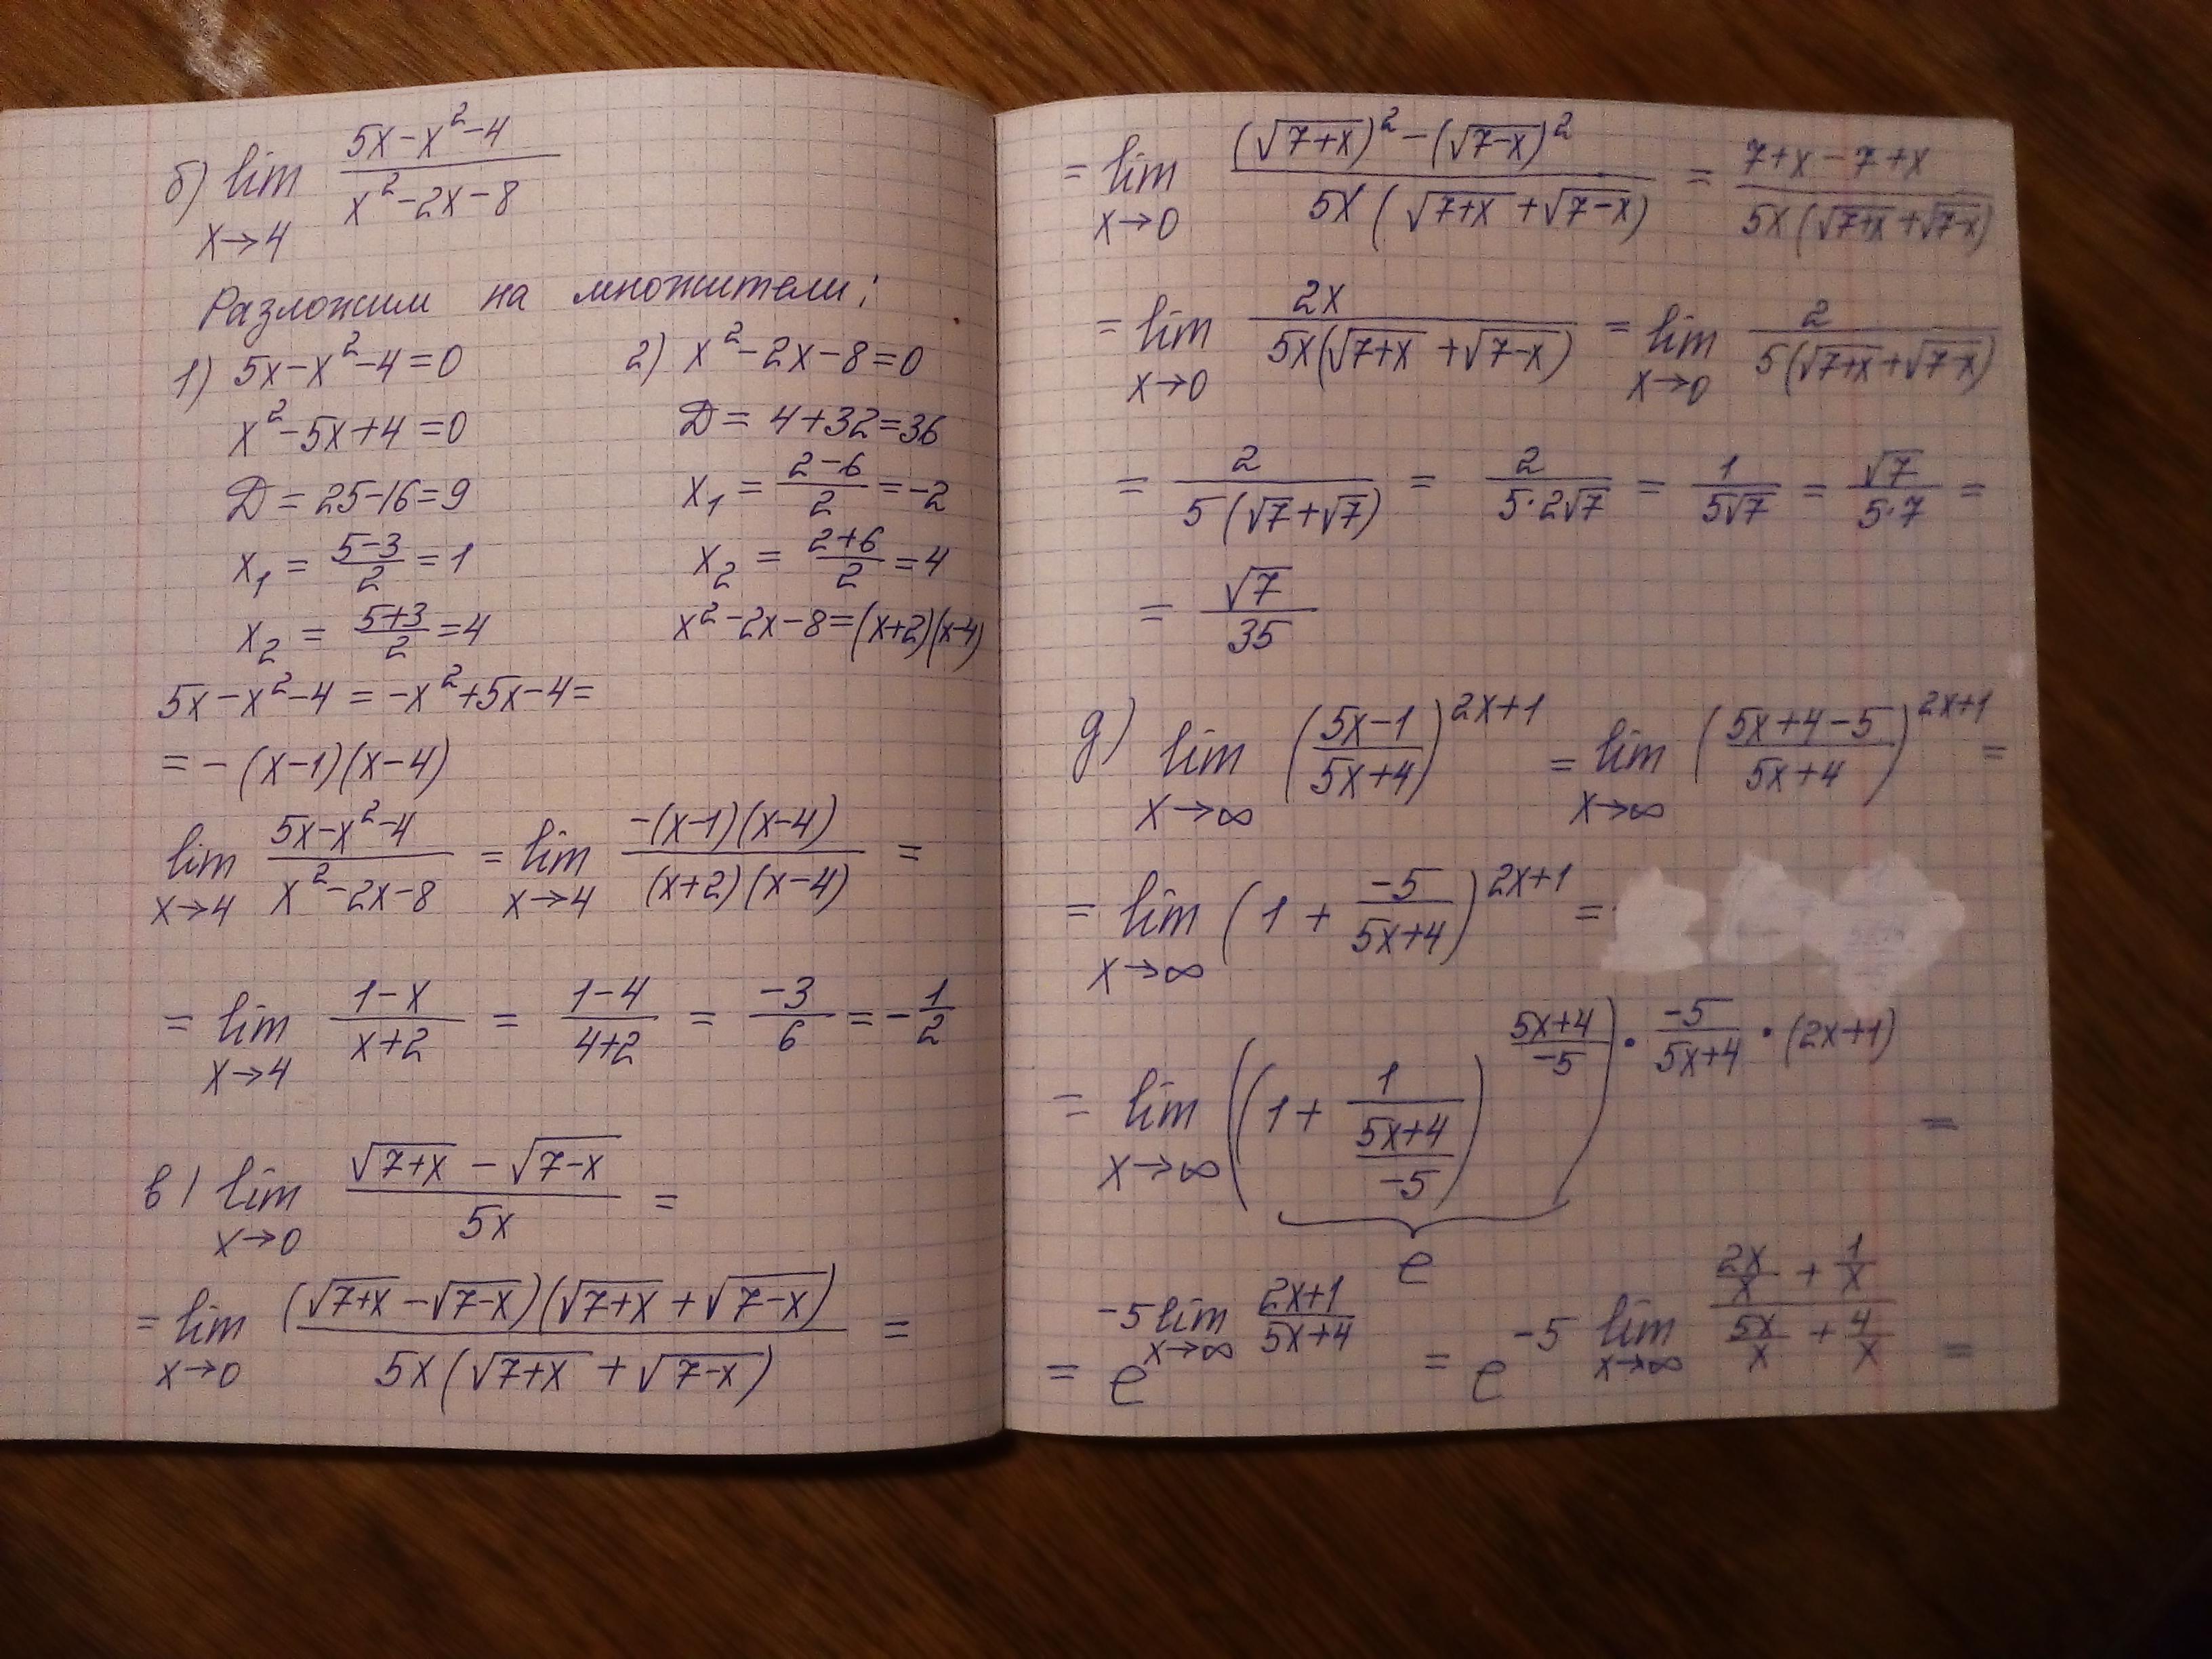 б) lim x→4 (5x-x²-4)/(x²-2x-8)
Разложим на множители:
1) 5x-x²-4=0
x²-5x+4=0
D=25-16=9
x₁ = (5-3)/2 = 1
x₂ = (5+3)/2 = 4
5x-x²-4 = -x²+5x-4 =
= -(x-1)(x-4)
2) x²-2x-8=0
D = 4+32=36
x₁ = (2-6)/2 = -2
x₂ = (2+6)/2 = 4
x²-2x-8=(x+2)(x-4)
lim x→4 (5x-x²-4)/(x²-2x-8) = lim x→4 (-(x-1)(x-4))/((x+2)(x-4)) =
= lim x→4 (1-x)/(x+2) = (1-4)/(4+2) = (-3)/6 = -1/2
в) lim x→0 (√(7+x) - √(7-x))/(5x) =
= lim x→0 ((√(7+x) - √(7-x))(√(7+x) + √(7-x)))/(5x(√(7+x) + √(7-x))) =
= lim x→0 ((√(7+x))² - (√(7-x))²)/(5x(√(7+x) + √(7-x))) = (7+x-7+x)/(5x(√(7+x) + √(7-x)))
= lim x→0 (2x)/(5x(√(7+x) + √(7-x))) = lim x→0 2/(5(√(7+x) + √(7-x)))
= 2/(5(√7+√7)) = 2/(5·2√7) = 1/(5√7) = √7/(5·7) =
= √7/35
g) lim x→∞ ((5x-1)/(5x+4))^(2x+1) = lim x→∞ ((5x+4-5)/(5x+4))^(2x+1) =
= lim x→∞ (1 + (-5)/(5x+4))^(2x+1) =
= lim x→∞ ((1 + 1/((5x+4)/(-5)))^((5x+4)/(-5)))^(· (-5)/(5x+4) · (2x+1)) =
e
= e^(-5 lim x→∞ (2x+1)/(5x+4)) = e^(-5 lim x→∞ (2x/x + 1/x)/(5x/x + 4/x)) =